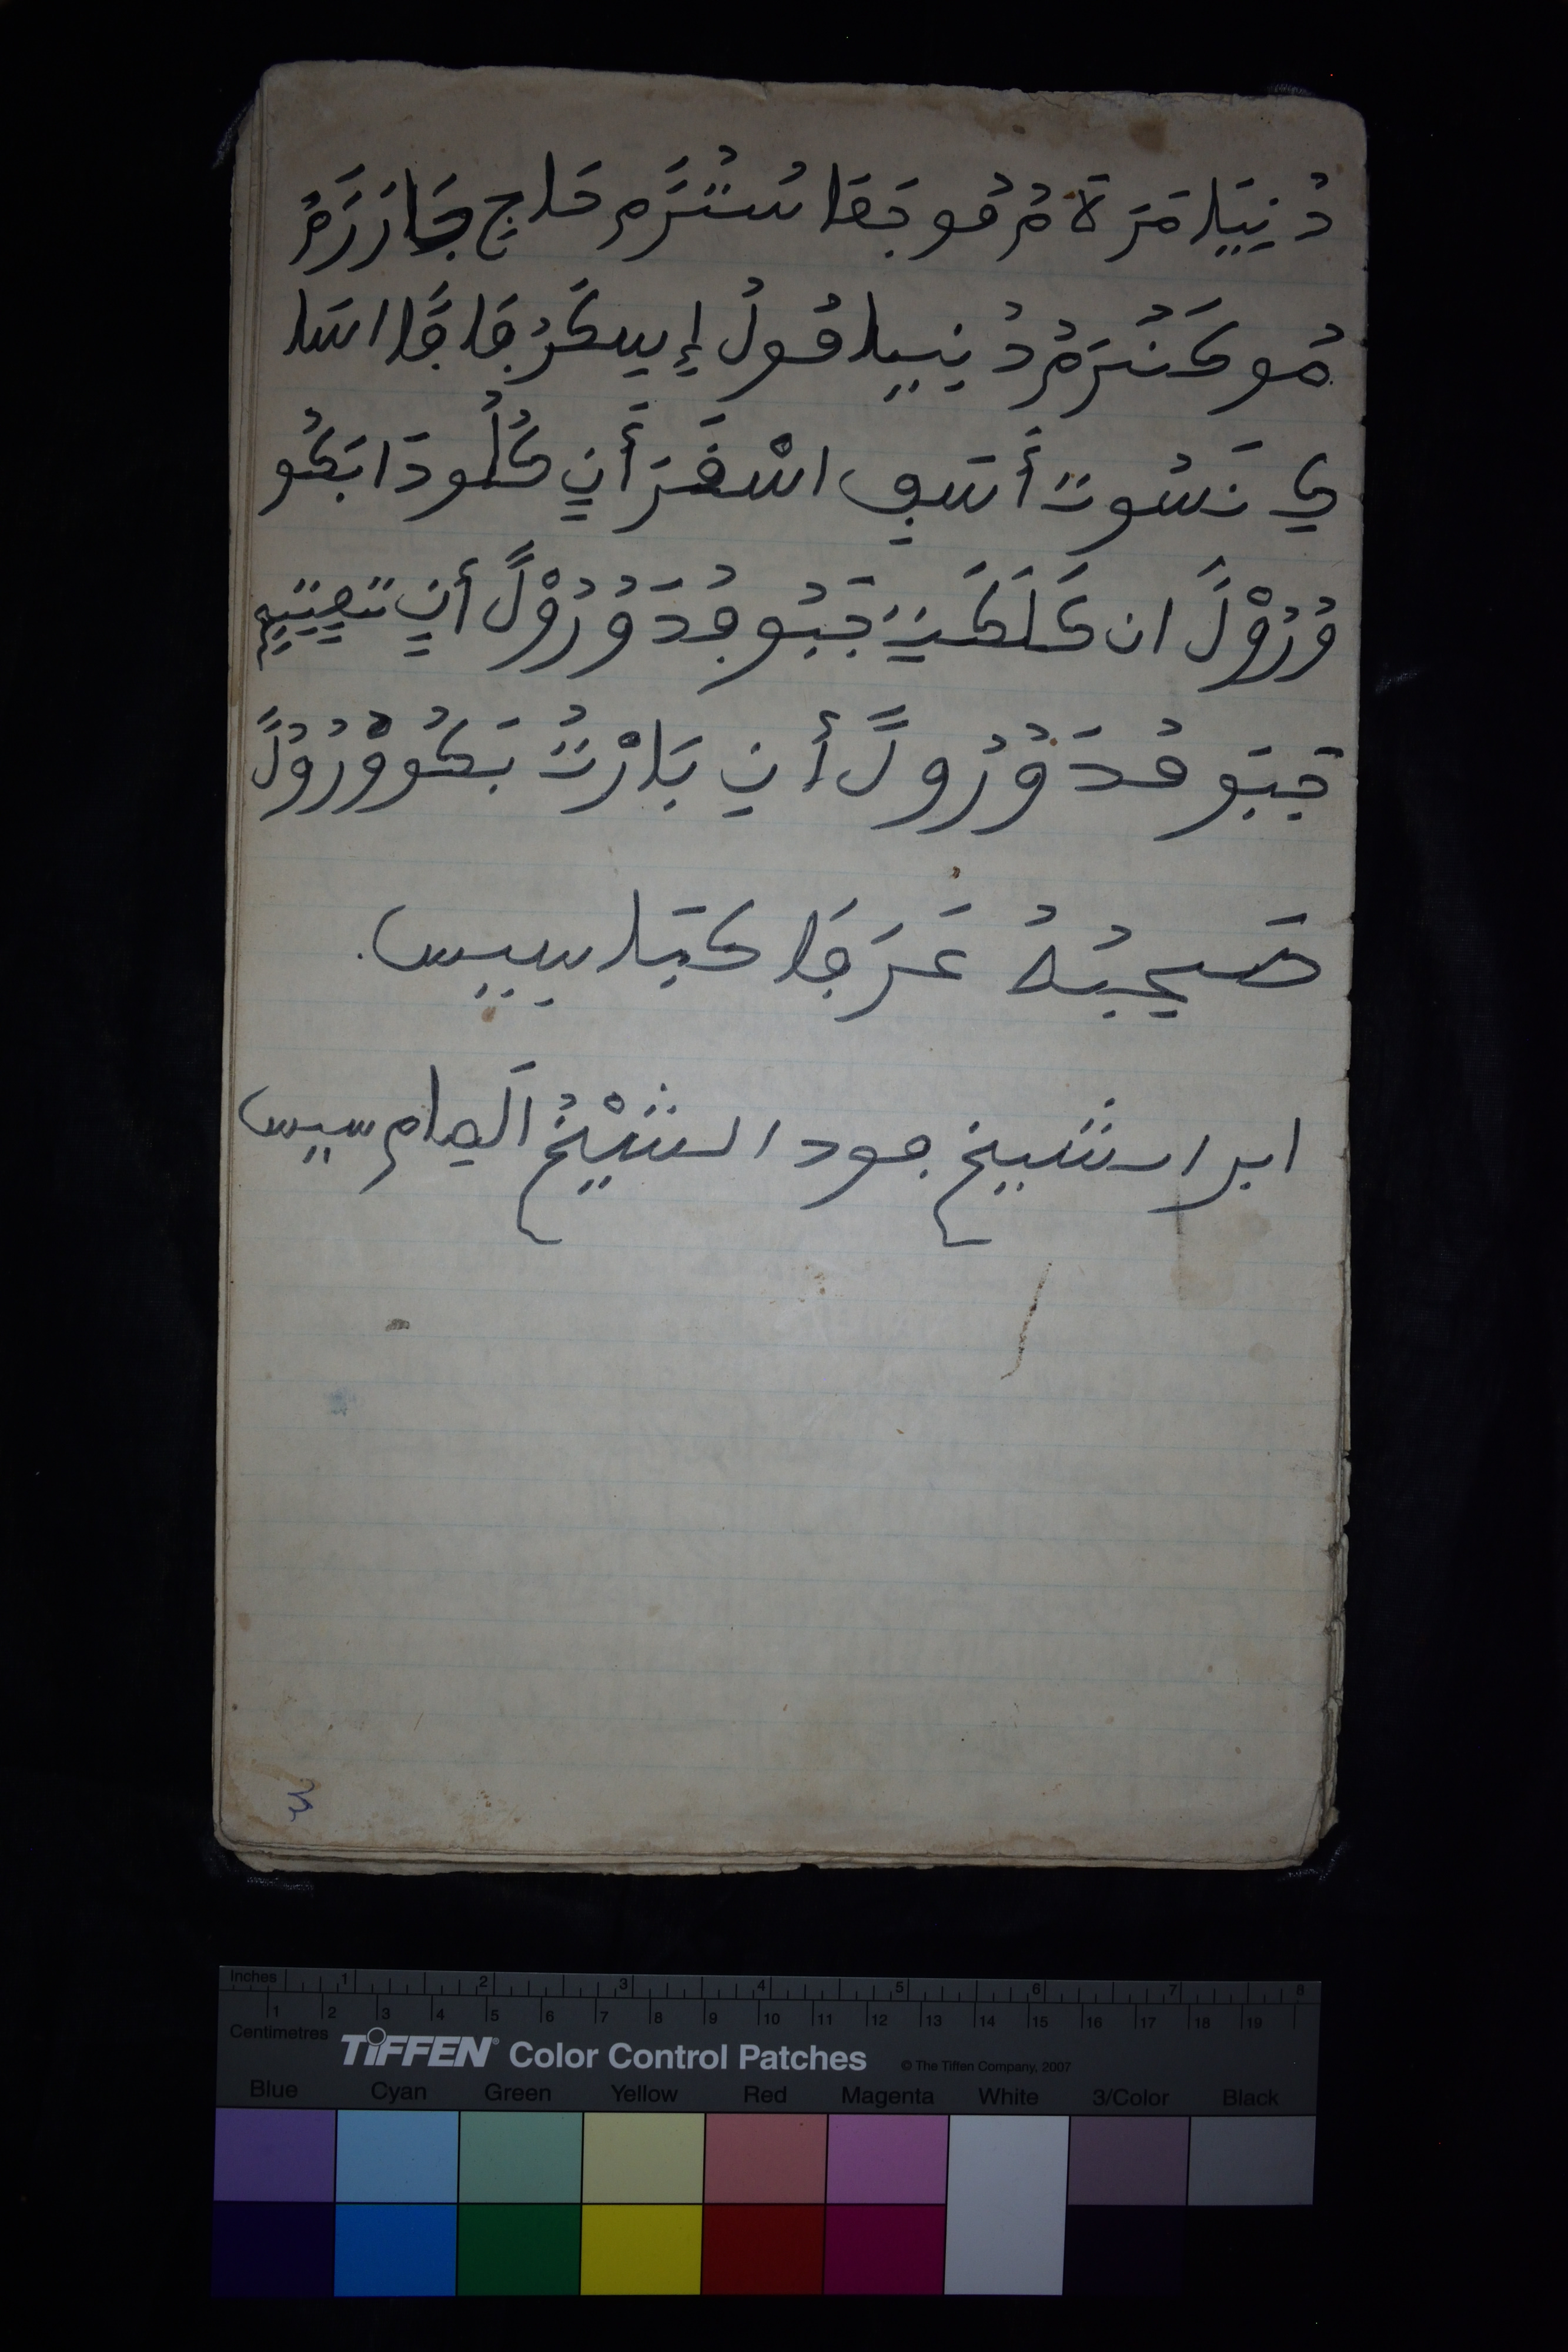 دُنِيَا مَرَ لَا مُ مُو جَعَا سُتُرَم حَاج جَازَرَمُ
مُو كَنُرَمُ دُ نِيِيا فُولُ إِيِكَرُ جَا جًا اسَا
كِي نَسُوتَ أَسَبِي اسْفَرَ أَنِ كُلُو دَا بَكُو
وُرُوْلَ ان كَلَكَنِ جَبِبُو جُدَ وُرُوْلً أَنِ
جَبِبَو حُدَ وُرُولً أنِ بَارْتُ بَكُو وُرُوُلً
صَحِبُهُ عَرَجَا كَبَا سِيِس.
ابرا شيخ جود الشَيْخُ اَلحام سيس
Inches 1 2 3 4 5 6 7 8
Centimetres 1 2 3 4 5 6 7 8 9 10 11 12 13 14 15 16 17 18 19
TIFFEN® Color Control Patches © The Tiffen Company, 2007
Blue Cyan Green Yellow Red Magenta White 3/Color Black